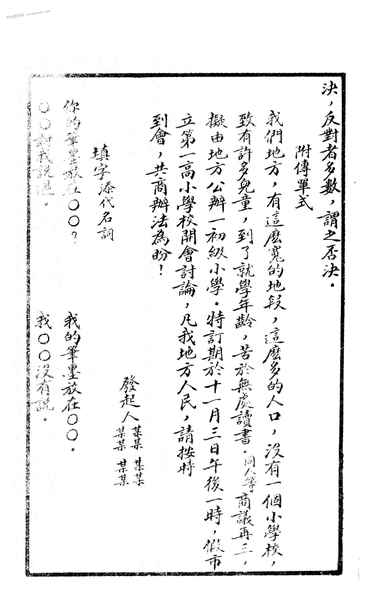 決，反對者多數，謂之否決．
附傳單式
我們地方，有這麽寬的地段，這麽多的人口，沒有一個小學校，
致有許多兒童，到了就學年齡，苦於無處讀書．同人等商議再三，
擬由地方公辦一初級小學．特訂期於十一月三日午後一時，假市
立第一高小學校開會討論，凡我地方人民，請按時
到會，共商辦法為盼！
發起人某某 某某
某某 某某
填字添代名詞
你的筆墨放在〇〇？ 我的筆墨放在〇〇．
〇〇對我說過． 我〇〇沒有說．